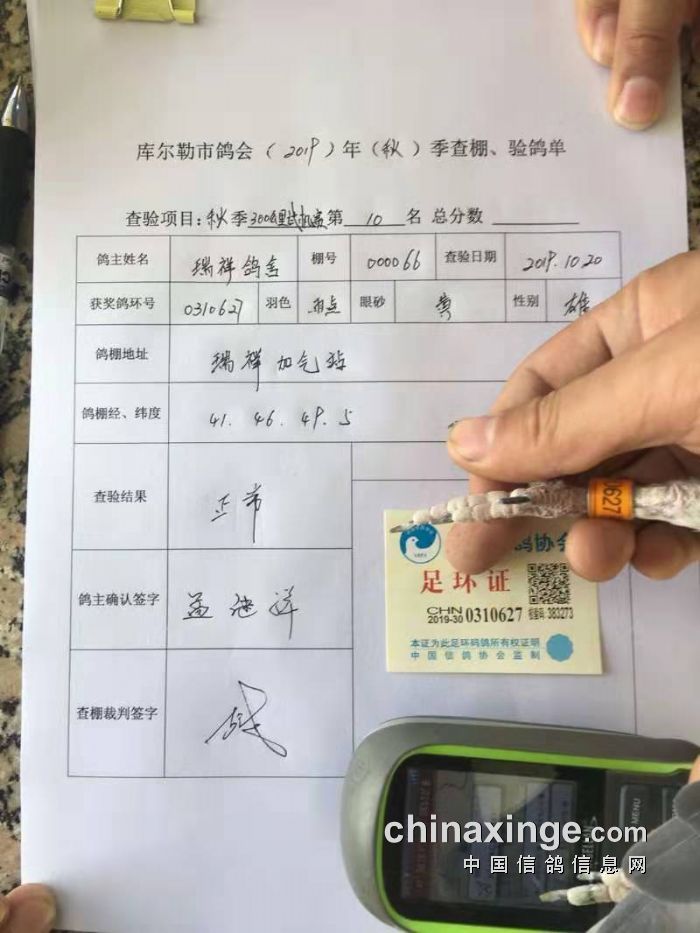 库尔勒市鸽会（2019）年（秋）季查棚、验鸽单
查验项目：秋季300公里 第 10 名 总分数
鸽主姓名 瑞祥鸽舍 棚号 000066 查验日期 2019.10.20
获奖鸽环号 0310627 羽色 雨点 眼砂 黄 性别 雄
鸽棚地址 瑞祥加气站
鸽棚经、纬度 41.46.49.5
查验结果 正常
鸽主确认签字
查棚裁判签字
0627
鸽协会
足环证
CHN
2019-30 0310627 校验码：383273
本证为此足环码鸽所有权证明
中国信鸽协会监制
MENU
chinaxinge.com
中国信鸽信息网